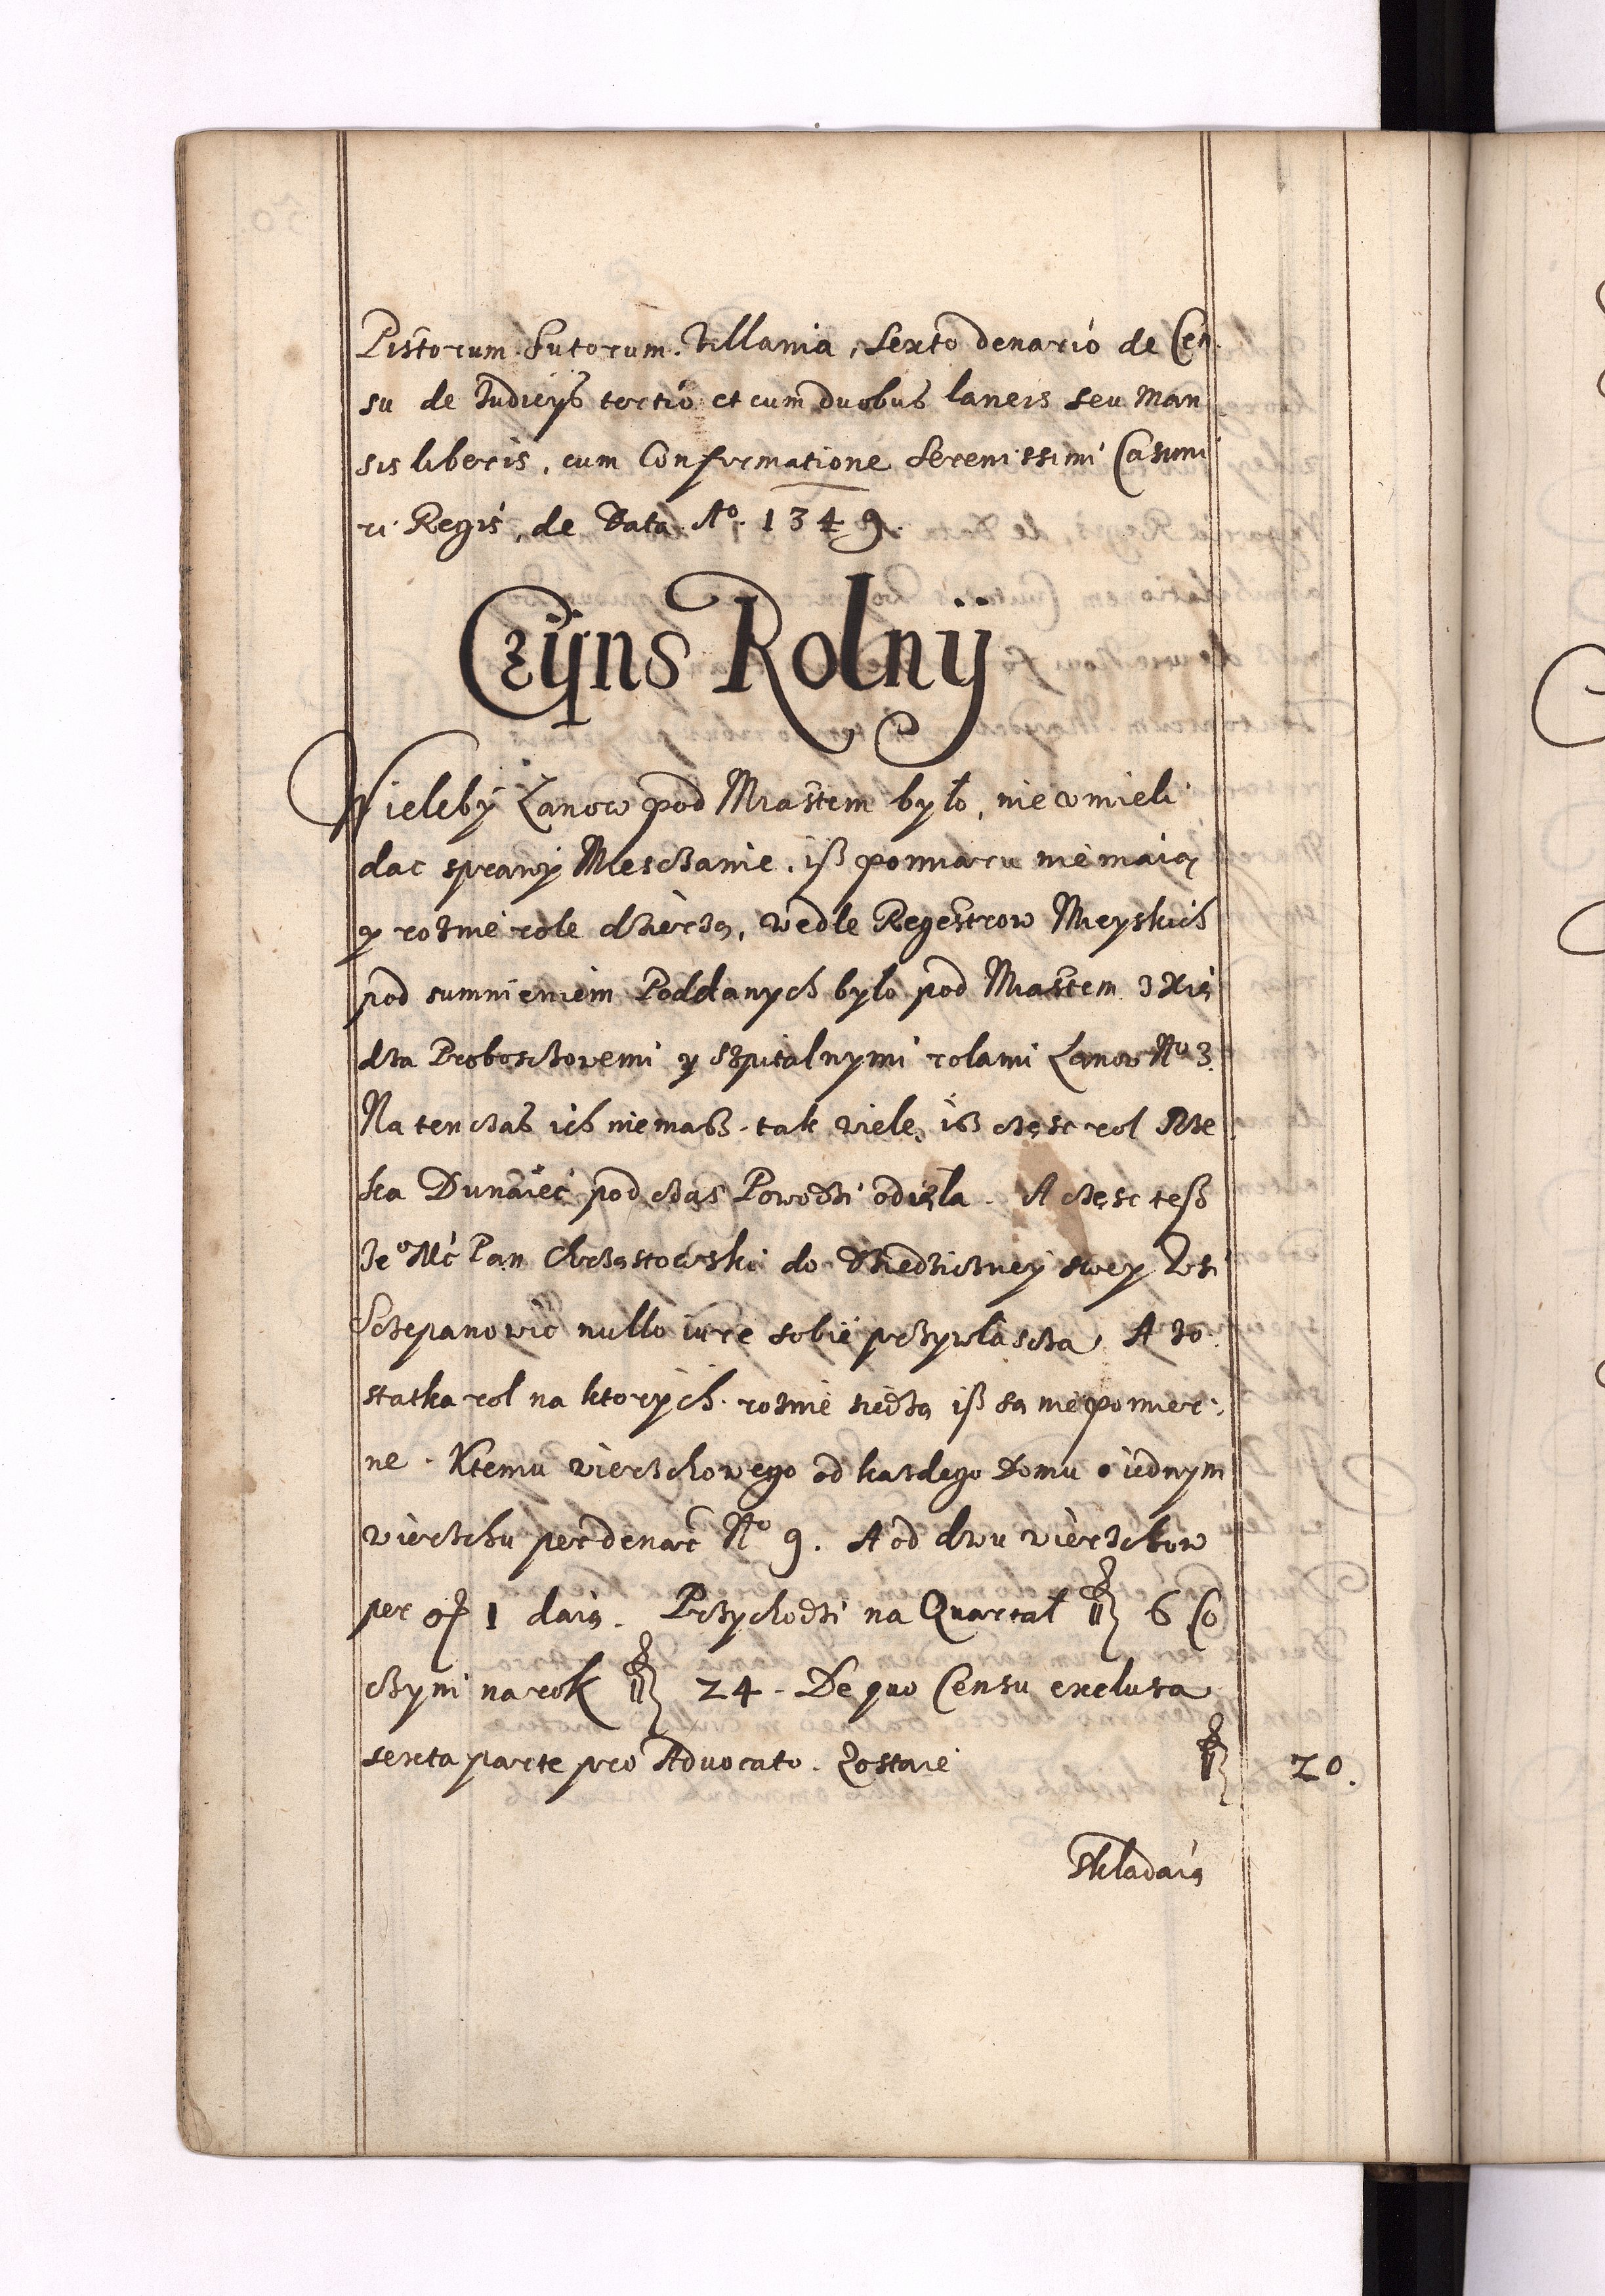 Pistorum Sutorum. Villania, Sexto denario de Cen
su de Judicÿs tertio et cum duobus laneis seu Man
sis liberis, cum Confirmatione Serenissimi Casimi
ri Regis, de Data Aº. 1349.
Czÿns Rolnÿ
Wieleby Łanow pod Miastem było, nie umieli
dac sprawy Miesczanie, iß pomiaru nie maią
y rożnie role dzierżą, wedle Regestrow Mieyskich
pod sumnieniem Poddanych było pod Miastem z Xię
dza Proboszczowemi y Szpitalnymi rolami Łanow Nº 3.
Na ten czas ich niemasz tak wiele, iß częsc rol Rze
ka Dunaiec pod czas Powodzi odięła. A częsc teß
Jeº Mc Pan Chrząstowski do dziedziczney swey Wsi
Sczepanowic nullo iure sobie przywłascza. A zo
statka rol na ktorych rożnie siedzą iß są niepomier
ne. Ktemu wierzchowego od każdego Domu o iednym
wierzchu per denar Nº 9. A od dwu wierzchow
per gr 1 daią. Przychodzi na Quartał fl 6 Co
czyni na rok fl 24. De quo Censu exclusa
sexta parte pro Advocato. Zostaie fl 20.
Składaią